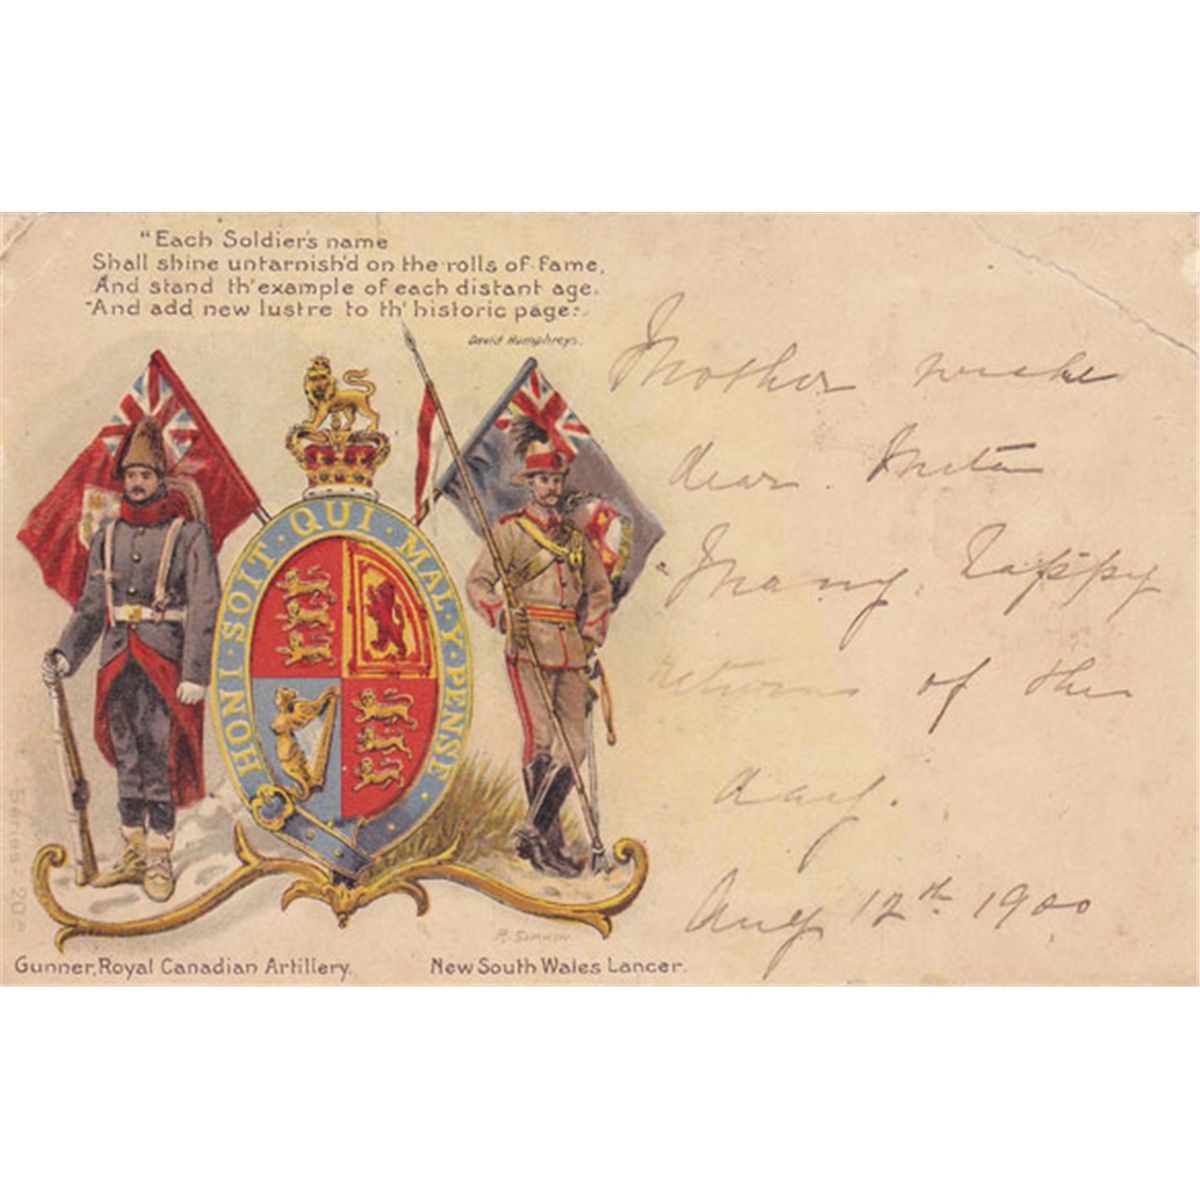 "Each Soldier's name
Shall shine untarnish'd on the rolls of fame,
And stand th' example of each distant age.
And add new lustre to th' historic page."
David Humphreys.
HONI · SOIT · QUI · MAL · Y · PENSE ·
R. SIMKIN.
Gunner, Royal Canadian Artillery.
New South Wales Lancer.
Series 20
Mother
dear Meta
Many Happy
returns of the
day.
Aug 12th 1900